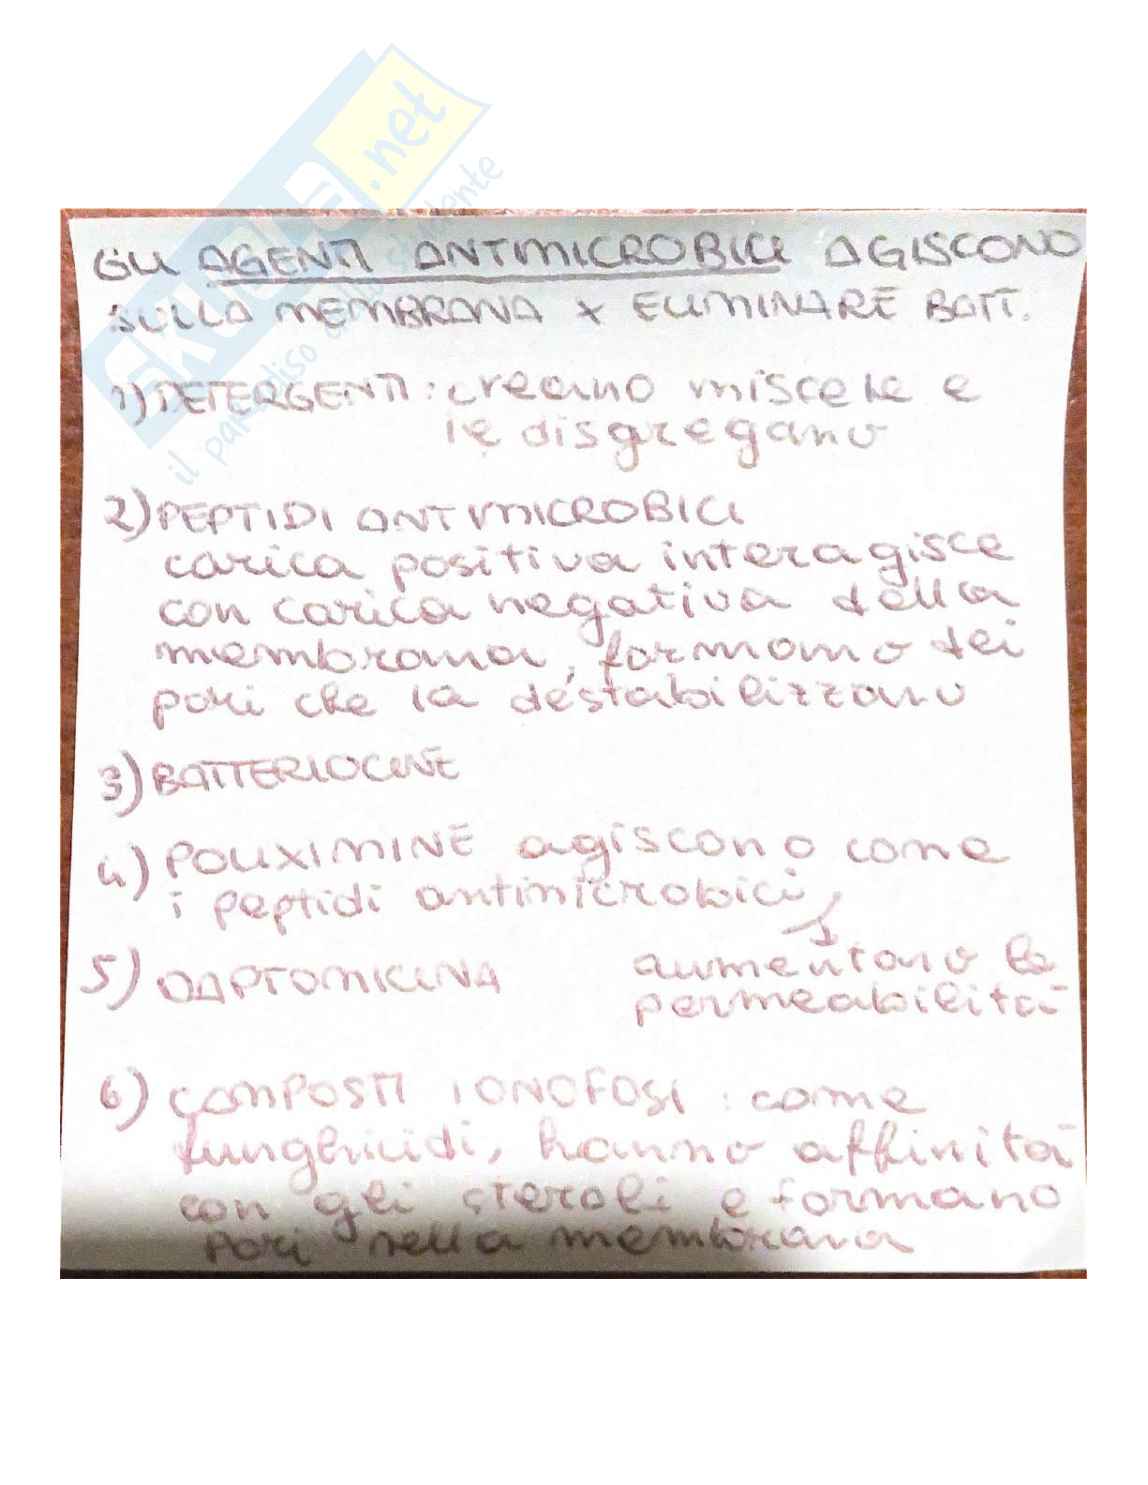 skuola.net
il paradiso dello studente
GLI AGENTI ANTIMICROBICI AGISCONO
SULLA MEMBRANA x ELIMINARE BATT.
1) DETERGENTI: creano miscele e
le disgregano
2) PEPTIDI ANTIMICROBICI
carica positiva interagisce
con carica negativa della
membrana, formano dei
pori che la destabilizzano
3) BATTERIOCINE
4) POLIXIMINE agiscono come
i peptidi antimicrobici
5) DAPTOMICINA
aumentano la
permeabilità
6) COMPOSTI IONOFOSI: come
funghicidi, hanno affinità
con gli steroli e formano
pori nella membrana